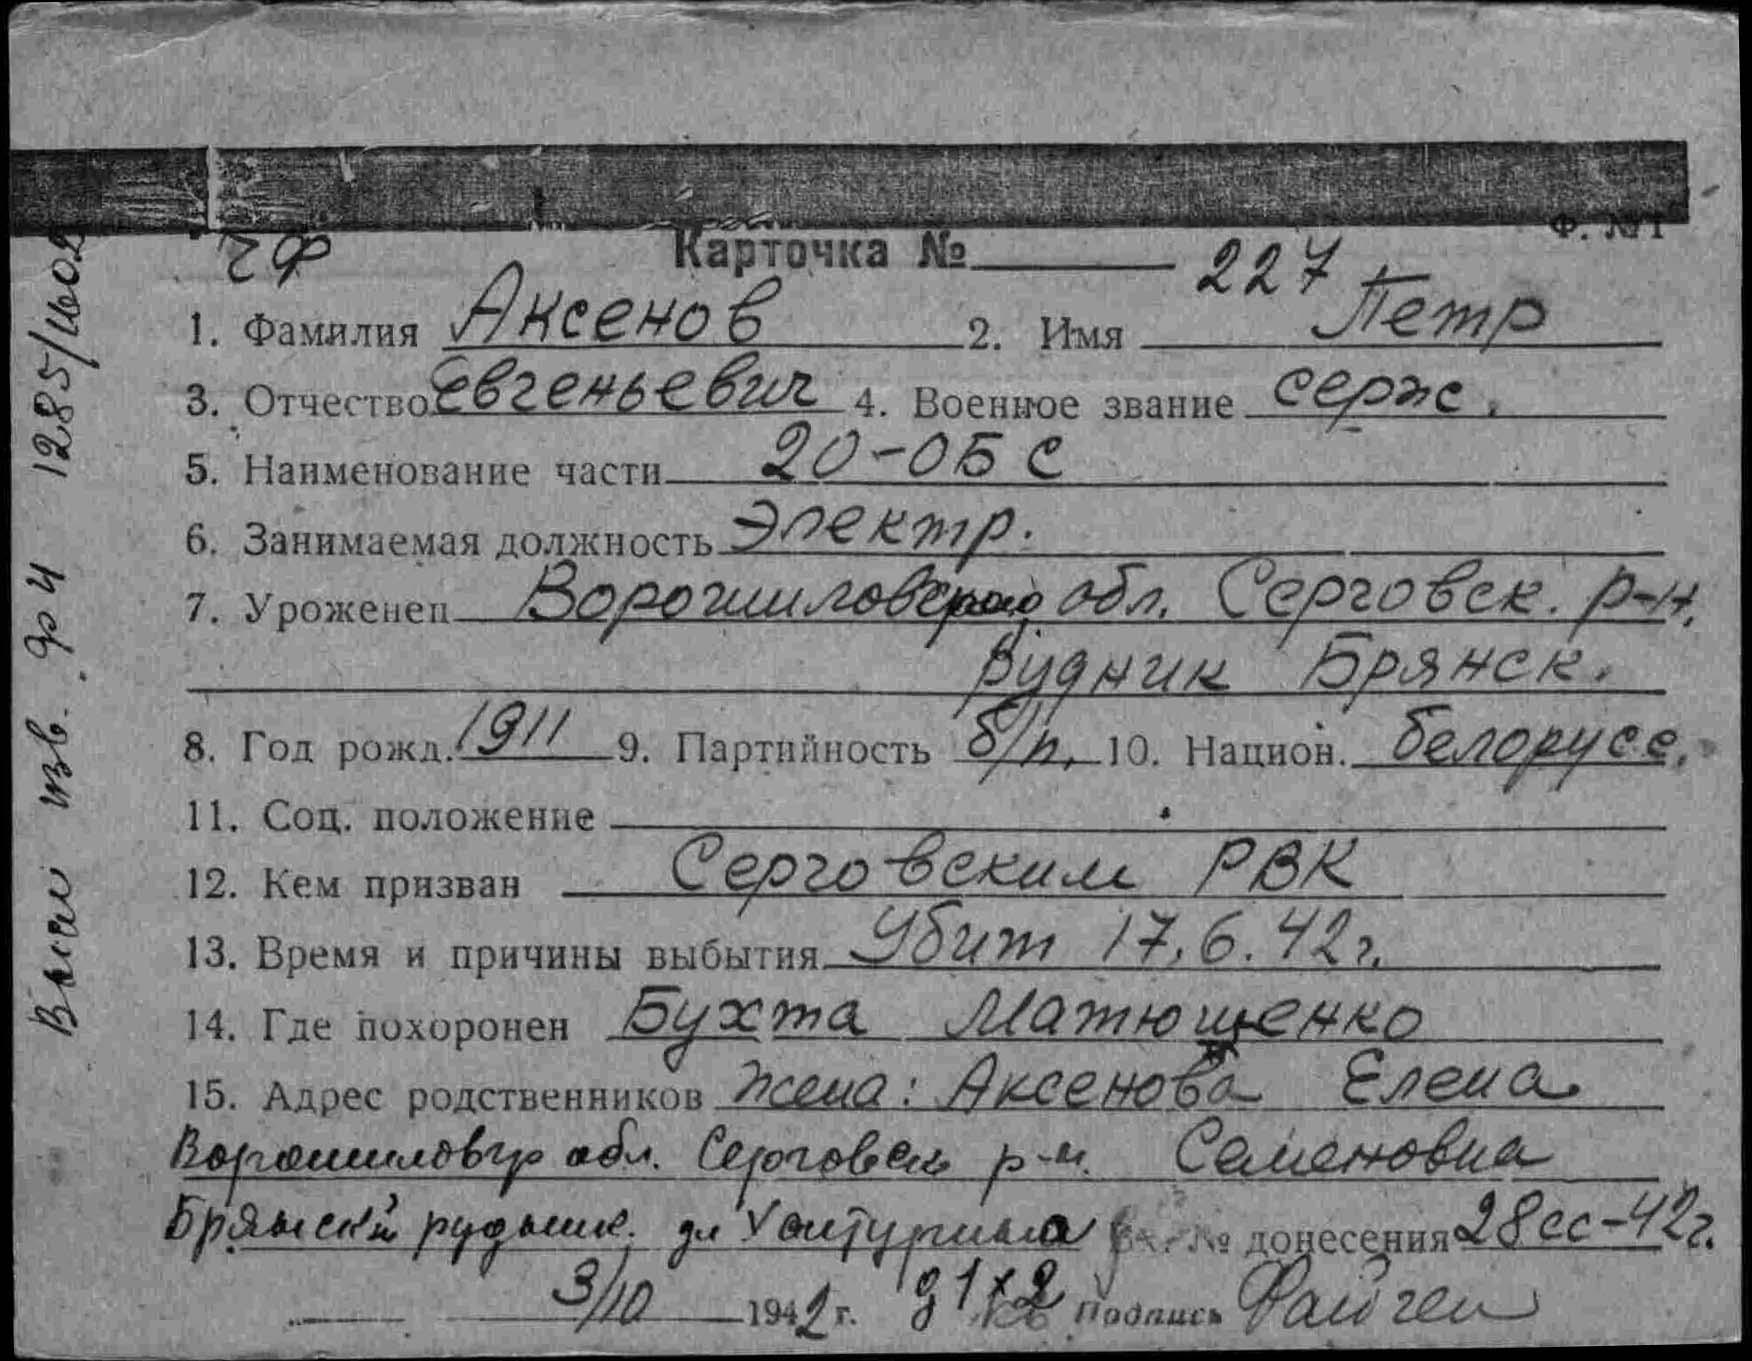 Ф. № 1
ЧФ Карточка № 227
1. Фамилия Аксенов 2. Имя Петр
3. Отчество Евгеньевич 4. Военное звание серж.
5. Наименование части 20-ОБС
6. Занимаемая должность Электр.
7. Уроженец обл. Серговск. р-н,
рудник Брянск.
8. Год рожд. 1911 9. Партийность б/п. 10. Национ. белорусс.
11. Соц. положение
12. Кем призван Серговским РВК
13. Время и причины выбытия Убит 17.6.42г.
14. Где похоронен Бухта Матющенко
15. Адрес родственников жена: Аксенова Елена
Ворошиловгр обл. р-н. Семеновна
№ донесения 28сс-42г.
3/10 1942 г. Подпись
изв. ф 4 1285/